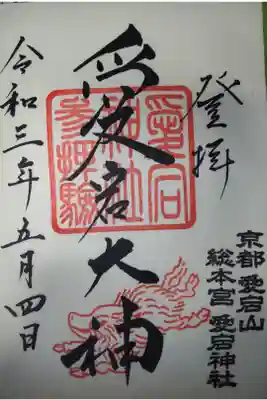 登拝
愛宕大神
愛宕
神社
参拝驗
令和三年五月四日
京都 愛宕山
総本宮 愛宕神社